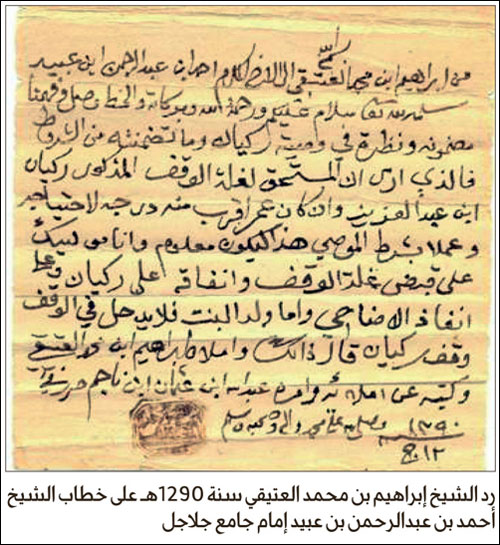 من ابراهيم ابن محمد العتيقي الى الاخ المكرم احمد ابن عبد الرحمن ابن عبيد
سلمه الله تعا سلام عليكم ورحمة الله وبركاته والخط وصل وفهمنا
مضمونه ونظرة في وصية ركيان وما تضمنته من الشروط
فالذي ارى ان المستحق لغلة الوقف المذكور ركيان
ابن عبد العزيز وان كان عمر اقرب منه درجه لاحتياجه
وعملا بشرط الموصي هذا ليكون معلوم وانا موكليك
على قبض غلة الوقف وانفاقه على ركيان وعلى
انفاذ الاضاحي واما ولد البنت فلا يدخل في الوقف
وقف ركيان قال ذالك واملاه ابراهيم ابن محمد العتيقي
وكتبه عن املائه وامره عبد الله ابن عثمان ابن ناجم
وصلى الله على محمد واله وصحبه وسلم
١٢٩٠
١٢ ج
رد الشيخ إبراهيم بن محمد العتيقي سنة 1290هـ على خطاب الشيخ
أحمد بن عبدالرحمن بن عبيد إمام جامع جلاجل